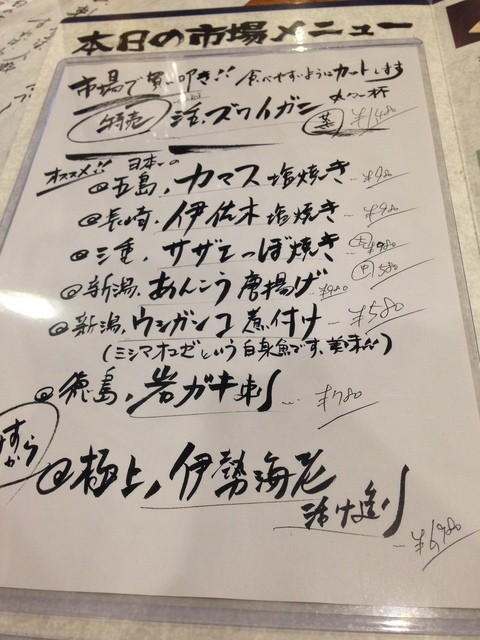 本日の市場メニュー
市場で買い叩き!! 食べやすいようにカットします
特売 活ズワイガニ 丸々一杯 蒸 ¥1480
オススメ!! 日本一の
@五島、カマス塩焼き…¥980
@長崎、伊佐木塩焼き…¥980
@三重、サザエつぼ焼き 大 ¥980
中 ¥580
@新潟、あんこう唐揚げ…¥980
@新潟、ウシガンコ煮付け…¥580
(ミシマオコゼという白身魚です、美味!!)
@徳島、岩ガキ刺…¥780
@極上、伊勢海老
活け造り
…¥6980